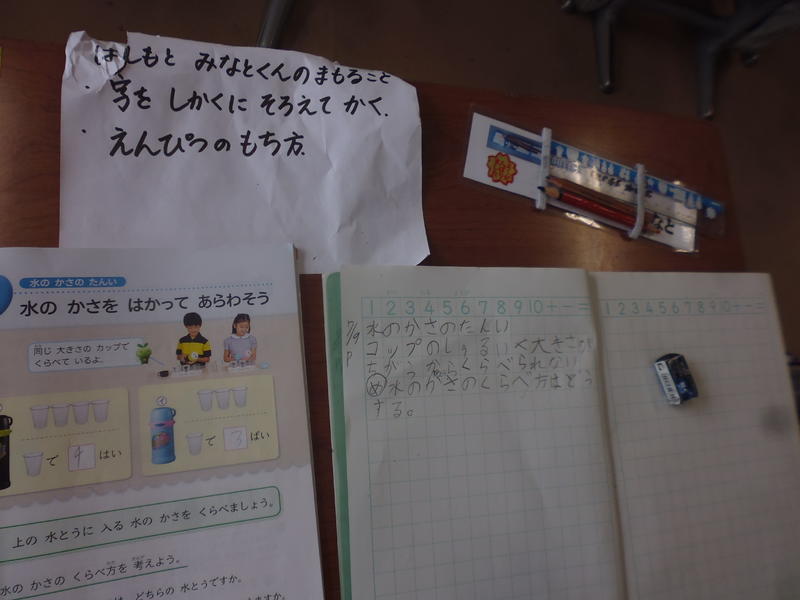 はしもと みなとくんのまもること
・字を しかくに そろえて かく.
・えんぴつの もち方.
水の かさの たんい
水の かさを はかって あらわそう
同じ 大きさの カップで
くらべて いるよ。
で 4 はい
イ
で 3 ばい
上の 水とうに 入る 水の かさを くらべましょう。
水の かさの くらべ方を 考えよう。
どちらの 水とうですか。
1 2 3 4 5 6 7 8 9 10 + − =
7/9 水のかさのたんい
P コップのしゅるい<大きさが
ちがっからくらべられない
め 水のかさのくらべ方はどう
する。
1 2 3 4 5 6 7 8 9 10 + − =